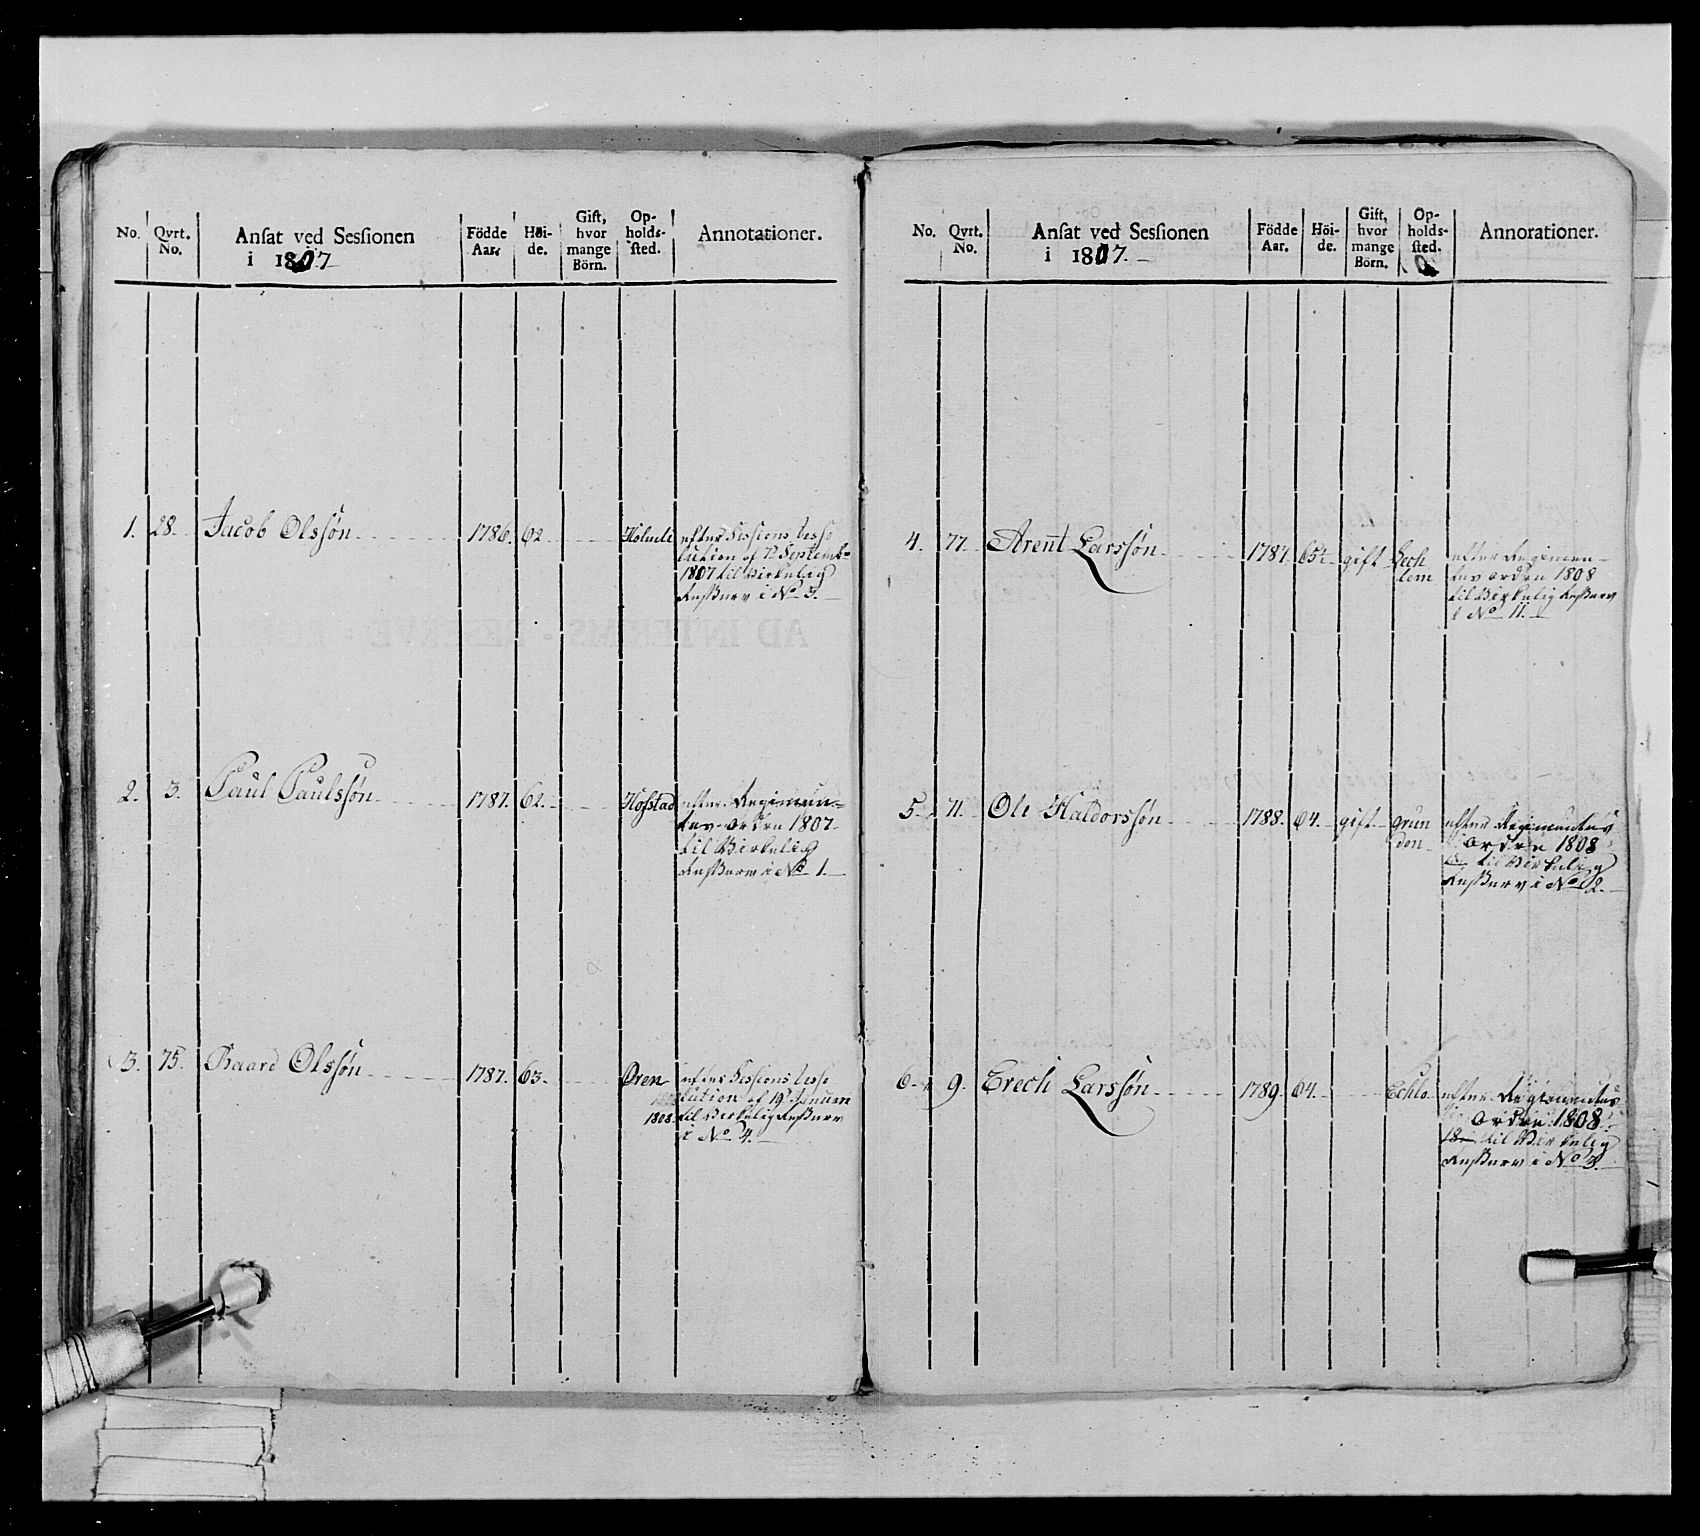 No. Qvrt. No. Ansat ved Sessionen i 1807. Födde Aar. Höi-de. Gift, hvor mange Börn. Op-holds-sted. Annotationer.
1. 28. Jacob Olssøn 1786. 62. Holmli efter Sessions Resso
lution af 12 Septemb:
1807 til Virkelig
Reserv i No 3.
2. 3. Paul Paulssøn 1787. 62. Hofstad efter Regimen-
tes Ordre 1807
til Virkelig
Reserv i No 1.
3. 75. Baard Olssøn 1787. 63. Øren efter Sessions Resso
lution af 19 Januari
1808. til Virkelig Reserv
i No 4.
No. Qvrt. No. Ansat ved Sessionen i 1807. Födde Aar. Höi-de. Gift, hvor mange Börn. Op-holds-sted. Annorationer.
4. 77. Arent Larssøn 1787. gift efter Regimen-
tes Ordre 1808
til Virkelig Reserv
i No 11.
5. 71. Ole Haldorssøn 1788. 64. gift grun
den efter Regimentes
Ordre 1808
til Virkelig
Reserv i No 2.
6. 9. Erech Larssøn 1789. 64. Echlo efter Regimentes
Ordre 1808
til Virkelig
Reserv i No
AD INTERIMS - RESERVE